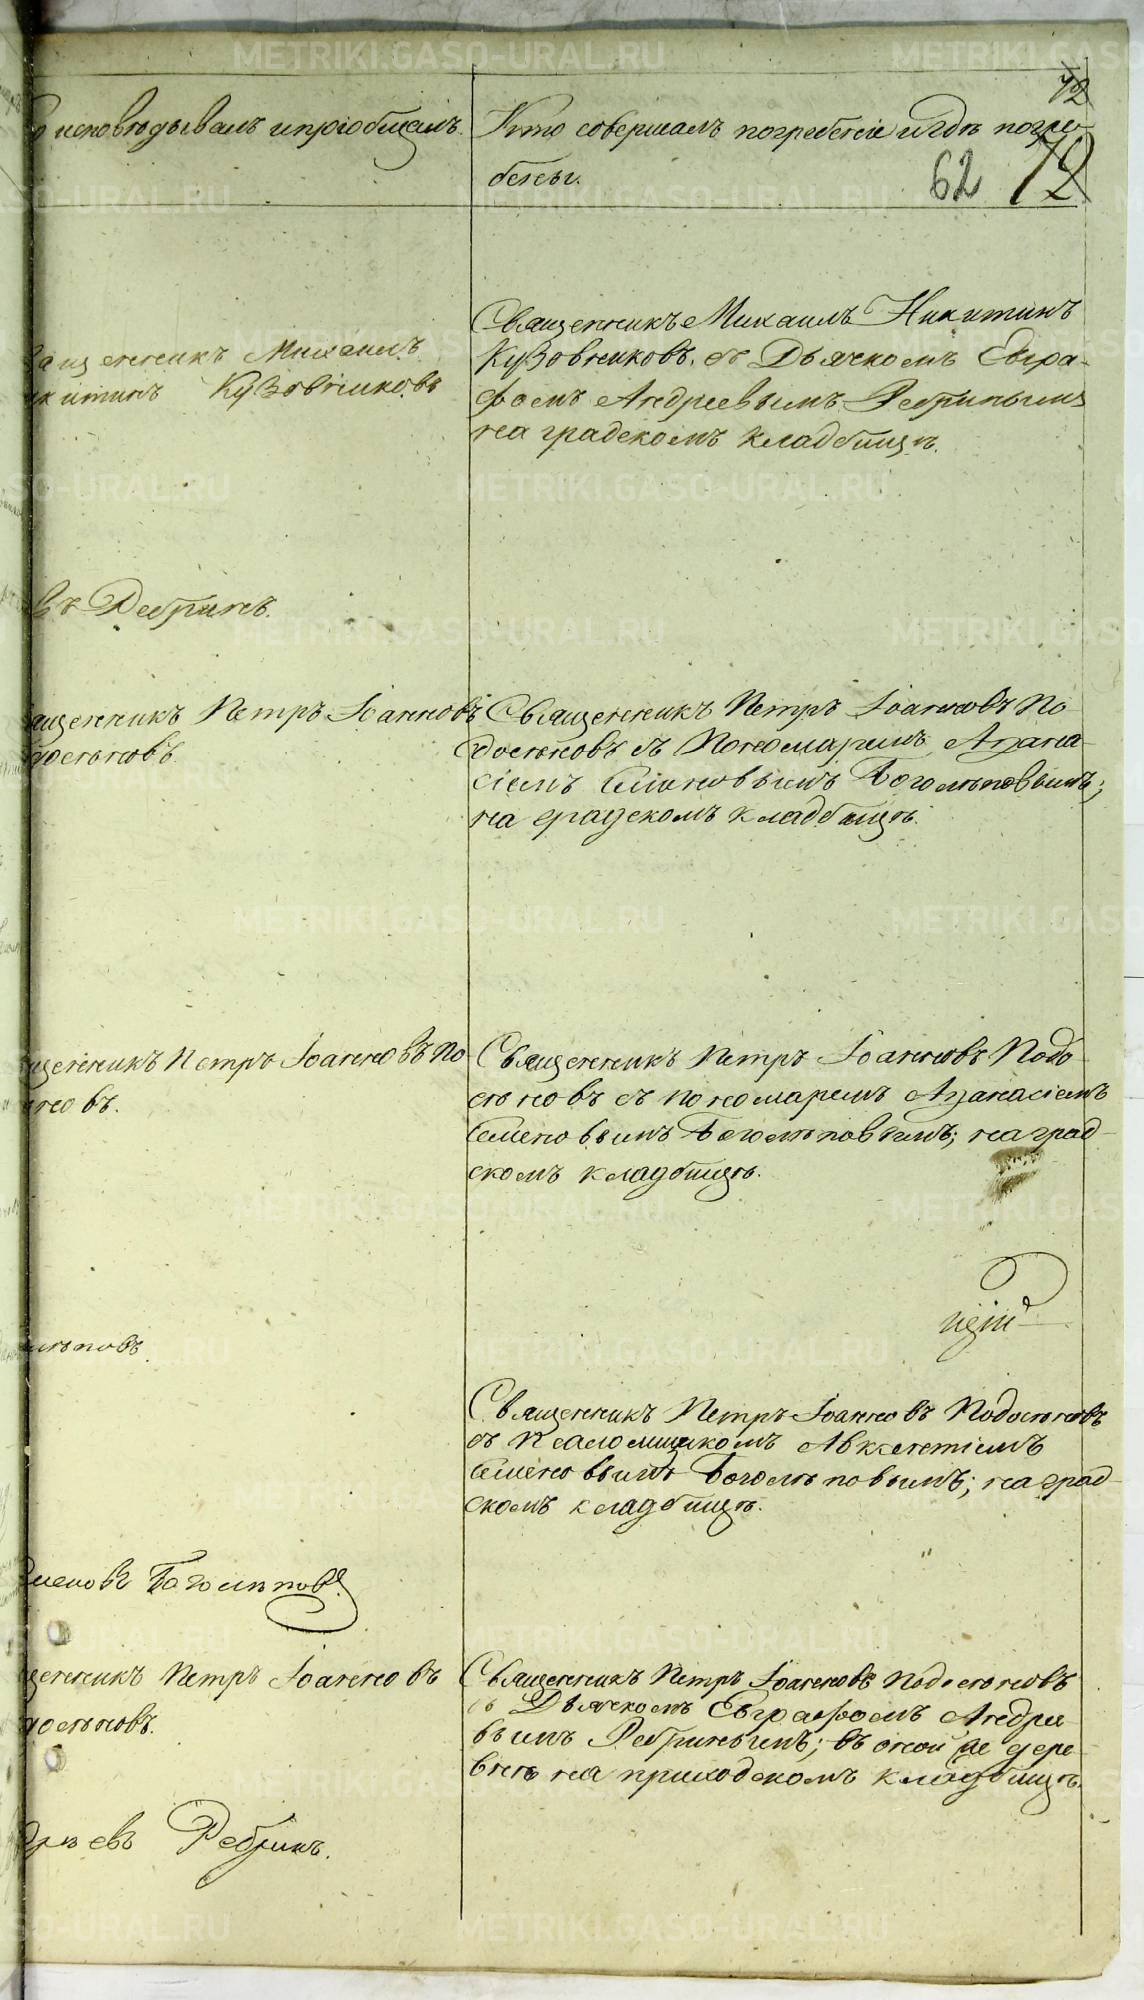 исповѣдывалъ и пріобщалъ.
Кто совершалъ погребеніе и гдѣ погре-
бены.
72
62 72
Священникъ Михаилъ Никитинъ
Кузовниковъ. съ Дьячкомъ Евгра-
фомъ Андреевымъ Ребринымъ
на градскомъ кладбищѣ.
ващенникъ Михаилъ
икитинъ Кузовниковъ
въ Ребринъ.
ященникъ Петръ Іоанновъ
досеновъ.
Священникъ Петръ Іоанновъ По
досеновъ съ Пономаремъ Аѳана-
сіемъ Семеновымъ Боголѣповымъ;
на градскомъ кладбищѣ.
щенникъ Петръ Іоанновъ По
новъ.
Священникъ Петръ Іоанновъ Подо
сеновъ съ пономаремъ Аѳанасіемъ
Семеновымъ Боголѣповымъ; на град-
скомъ кладбищѣ.
лѣповъ.
Священникъ Петръ Іоанновъ Подосеновъ
съ Псаломщикомъ Авксентіемъ
Семеновымъ Боголѣповымъ; на град-
скомъ кладбищѣ.
меновъ Боголѣповъ
щенникъ Петръ Іоанновъ
досеновъ.
Священникъ Петръ Іоанновъ Подосеновъ
съ Дьячкомъ Евграфомъ Андре-
вымъ Ребринымъ; въ оной же дере-
внѣ на приходскомъ кладбищѣ.
дрѣевъ Ребринъ.
METRIKI.GASO-URAL.RU